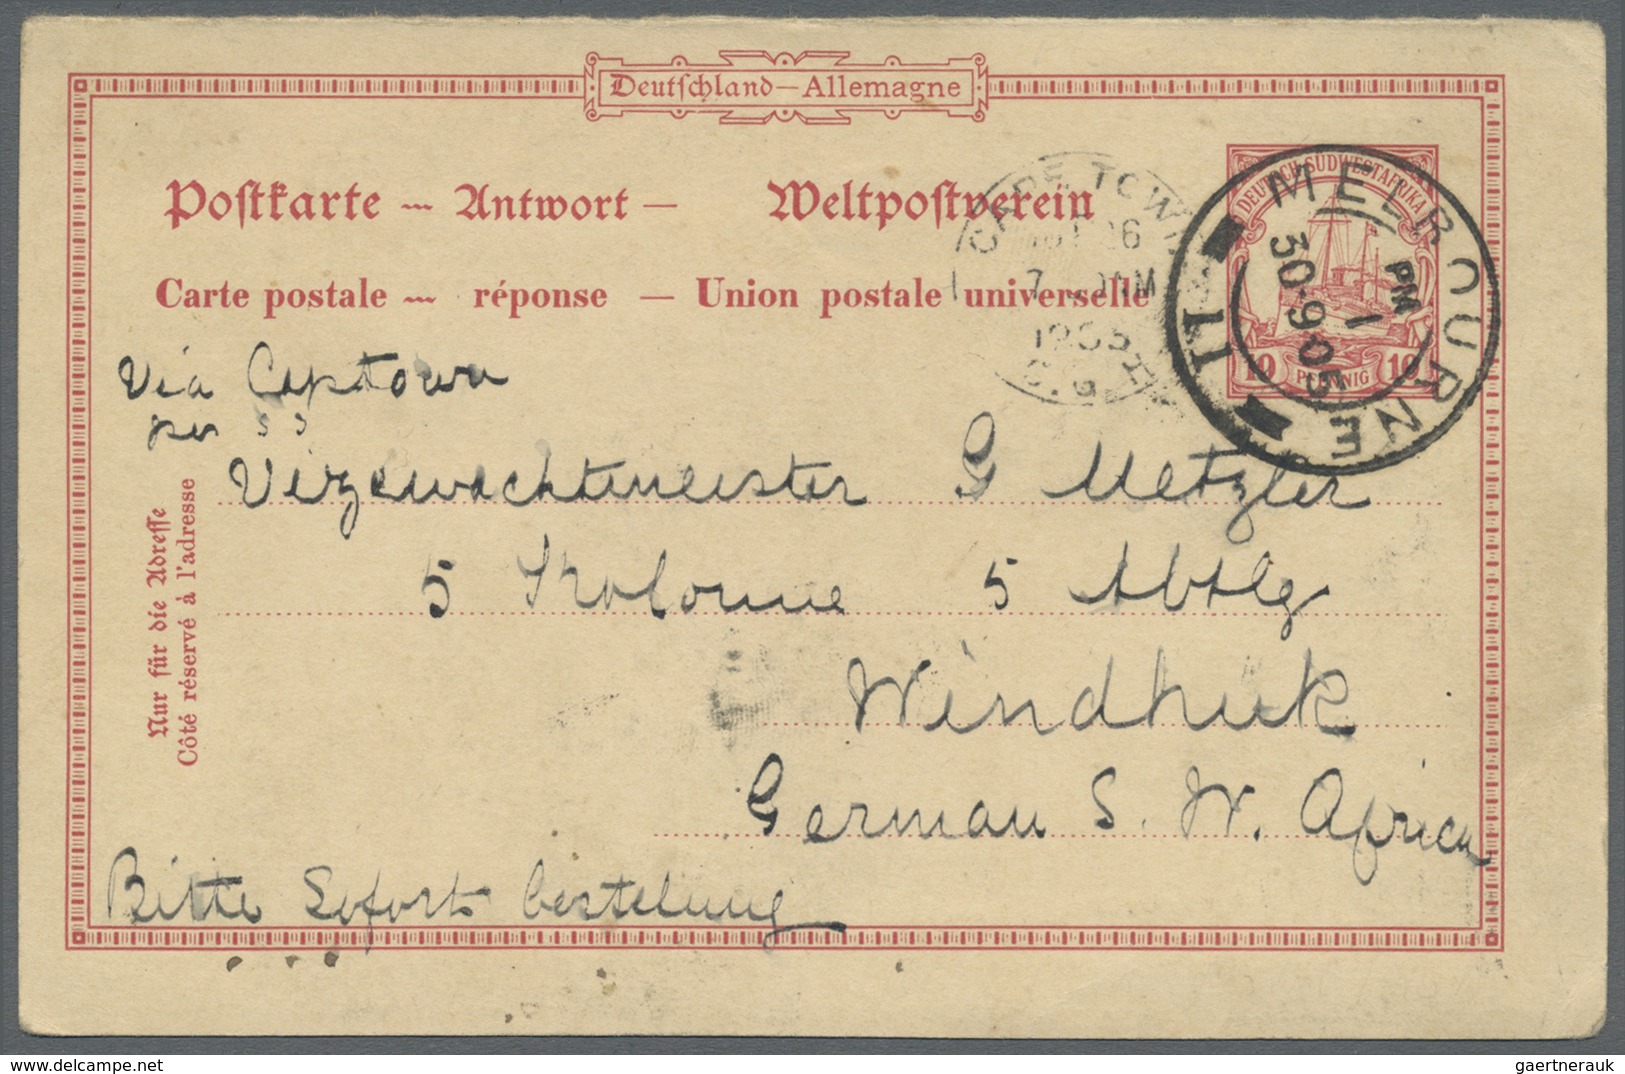 Deutschland — Allemagne
Postkarte — Antwort — Weltpostverein
Carte postale — réponse — Union postale universelle
DEUTSCH-SÜDWESTAFRIKA
10 PFENNIG 10
MELBOURNE
1 PM
30·9 05
11
CAPE TOWN
26
7 AM
1905
C.G.H
Via Captown
per SS
Vizewachtmeister G Metzler
5 Kolonne 5 Abtlg
Windhuk
German S. W. Africa
Bitte Sofort bestelung
Nur für die Adresse
Côté réservé à l'adresse
gaertnerauk